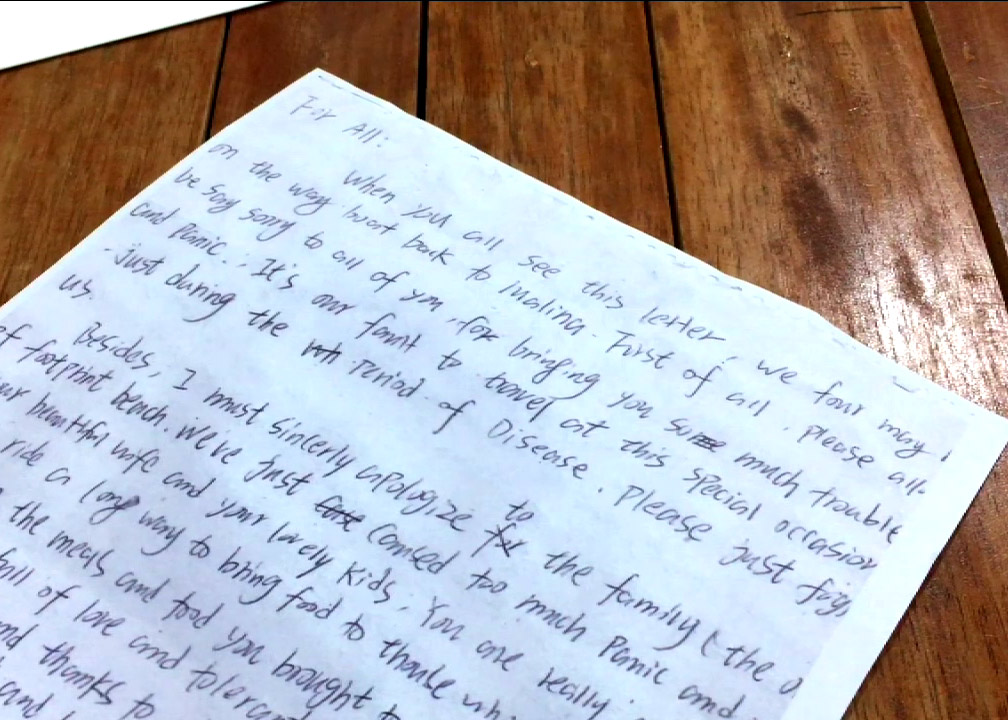 For All:
When you all see this letter, we four may
on the way boat back to malina. First of all, please all
be say sorry to all of you, for bringing you so much trouble
and panic. It's our fault to travel at this special occasion
just during the period of Disease. Please just
us.
Besides, I must sincerly apologize to the family (the
of footprint beach. We've just Caused too much Panic and
beautiful wife and your lovely kids. You are really
ride a long way to bring food to those
the meals and food you brought
full of love and
thanks to
and